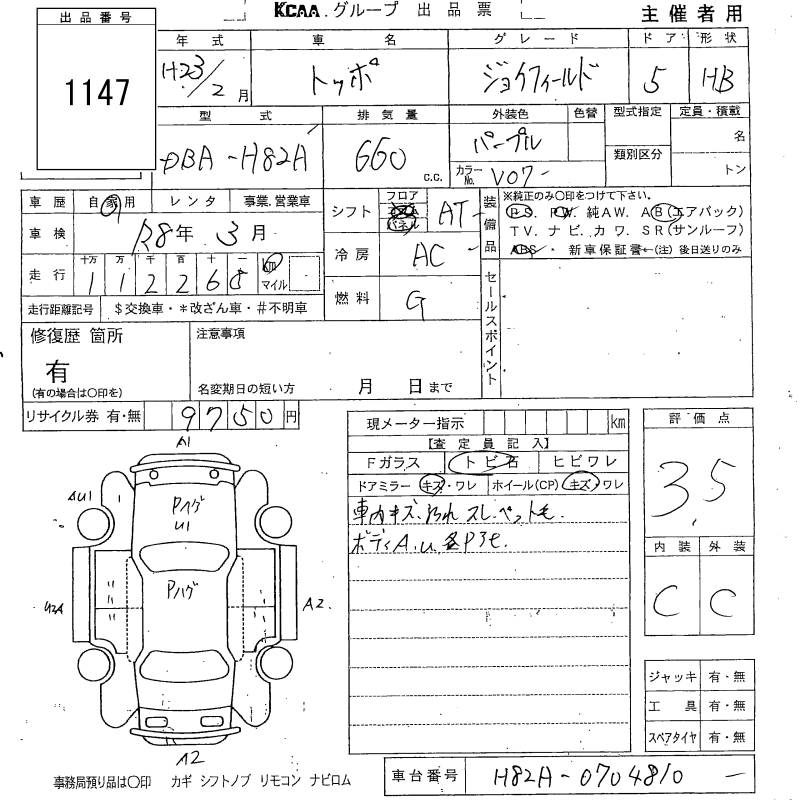 KCAA グループ 出品票
主催者用
出品番号
1147
年式 車名 グレード ドア 形状
H23/2月 トッポ ジョイフィールド 5 HB
型式 排気量 外装色 色替 型式指定 定員・積載
DBA-H82A 660 c.c. パープル 名
類別区分
カラーNo. V07 トン
車歴 自家用 レンタ 事業、営業車
車検 R8年 3月
シフト フロア コラム パネル AT
装備品 ※純正のみ〇印をつけて下さい。
PS. PW. 純AW. AB(エアバック)
TV. ナビ. カワ. SR(サンルーフ)
ABS. 新車保証書←(注) 後日送りのみ
冷房 AC
走行 十万 万 千 百 十 一 km マイル
112268
燃料 G
セールスポイント
走行距離記号 $交換車・*改ざん車・#不明車
修復歴 箇所 注意事項
有
(有の場合は〇印を) 名変期日の短い方 月 日まで
リサイクル券 有・無 9750円
現メーター指示 km
評価点
3.5
【査定員記入】
Fガラス トビ石 ヒビワレ
ドアミラー キズ・ワレ ホイール(CP) キズ・ワレ
車内キズ.汚れ スレ.ペットモ.
ボディA.U.各P3モ.
内装 外装
C C
A1
AU1
Pハゲ
U1
Pハゲ
U2A
A2
A2
ジャッキ 有・無
工具 有・無
スペアタイヤ 有・無
事務局預り品は〇印 カギ シフトノブ リモコン ナビロム
車台番号 H82A-0704810